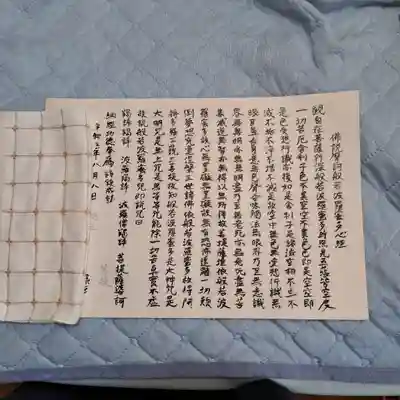 佛説摩訶般若波羅蜜多心經
觀自在菩薩行深般若波羅蜜多時照見五蘊皆空度
一切苦厄舎利子色不異空空不異色色即是空空即
是色受想行識亦復如是舎利子是諸法空相不生不
滅不垢不浄不増不減是故空中無色無受想行識無
眼耳鼻舌身意無色聲香味觸法無眼界乃至無意識
界無無明亦無無明盡乃至無老死亦無老死盡無苦
集滅道無智亦無得以無所得故菩提薩埵依般若波
羅蜜多故心無罣礙無罣礙故無有恐怖遠離一切顛
倒夢想究竟涅槃三世諸佛依般若波羅蜜多故得阿
耨多羅三藐三菩提故知般若波羅蜜多是大神咒是
大明咒是無上咒是無等等咒能除一切苦真實不虚
故説般若波羅蜜多咒即説咒曰
羯諦羯諦 波羅羯諦 波羅僧羯諦 菩提薩婆訶
令和三年八月八日